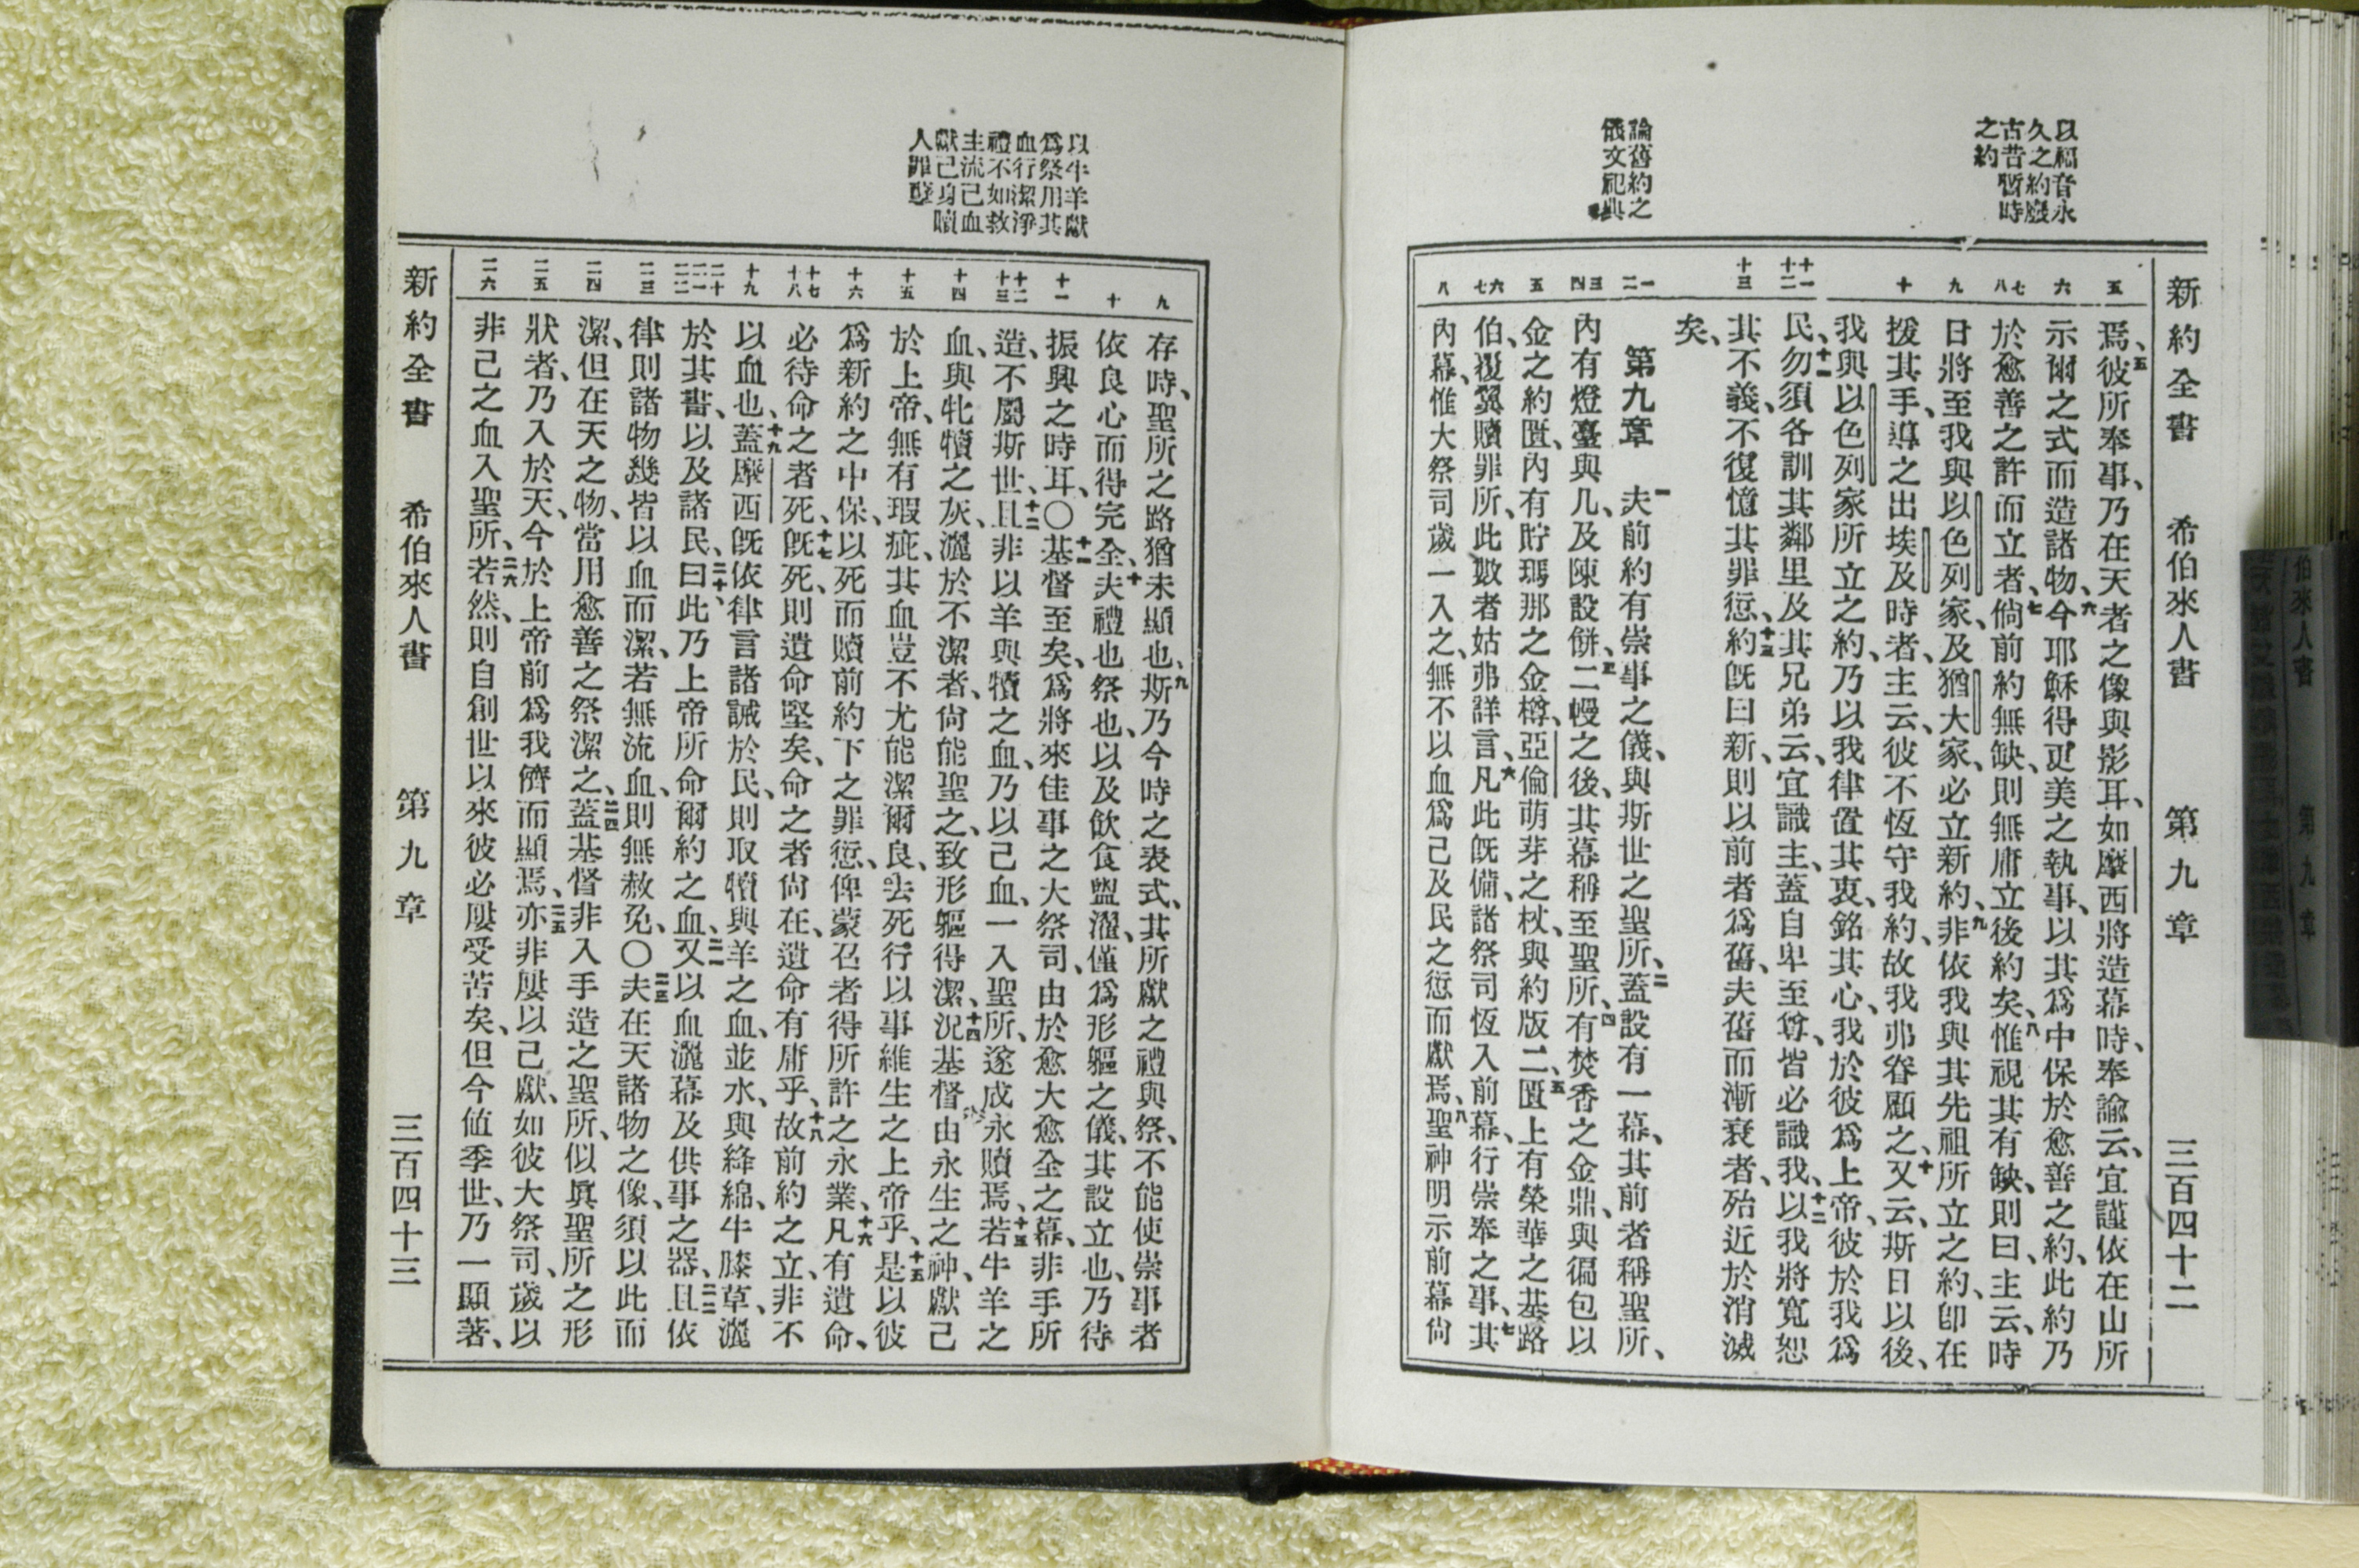 新約全書 希伯來人書 第九章 三百四十二
以福音永
久之約廢
古昔暫時
之約
論舊約之
儀文祀典
五 六 七 八 九 十 十一 十二 十三 一 二 三 四 五 六 七 八
焉、五彼所奉事、乃在天者之像與影耳、如摩西將造幕時、奉諭云、宜謹依在山所
示爾之式而造諸物、六今耶穌得更美之執事、以其爲中保於愈善之約、此約乃
於愈善之許而立者、七倘前約無缺、則無庸立後約矣、八惟視其有缺、則曰、主云、時
日將至我與以色列家、及猶大家、必立新約、九非依我與其先祖所立之約、卽在
援其手、導之出埃及時者、主云、彼不恆守我約、故我弗眷顧之、十又云、斯日以後、
我與以色列家所立之約、乃以我律置其衷、銘其心、我於彼爲上帝、彼於我爲
民、十一勿須各訓其鄰里及其兄弟云、宜識主、蓋自卑至尊、皆必識我、十二以我將寬恕
其不義、不復憶其罪愆、十三約旣曰新、則以前者爲舊、夫舊而漸衰者、殆近於消滅
矣、
第九章 一夫前約有崇事之儀、與斯世之聖所、二蓋設有一幕、其前者稱聖所、
內有燈臺與几、及陳設餅、三二幔之後、其幕稱至聖所、四有焚香之金鼎、與徧包以
金之約匱、內有貯瑪那之金樽、亞倫萌芽之杖、與約版二、五匱上有榮華之基路
伯、覆翼贖罪所、此數者姑弗詳言、六凡此旣備、諸祭司恆入前幕、行崇奉之事、七其
內幕、惟大祭司歲一入之、無不以血爲己及民之愆而獻焉、八聖神明示前幕尙
以牛羊獻
爲祭用其
血行潔淨
禮不如救
主流己血
獻己身贖
人罪孽
九 十 十一 十二 十三 十四 十五 十六 十七 十八 十九 二十 二一 二二 二三 二四 二五 二六
存時、聖所之路猶未顯也、九斯乃今時之表式、其所獻之禮與祭、不能使崇事者
依良心而得完全、十夫禮也祭也、以及飲食盥濯、僅爲形軀之儀、其設立也、乃待
振興之時耳、〇十一基督至矣、爲將來佳事之大祭司、由於愈大愈全之幕、非手所
造、不屬斯世、十二且非以羊與犢之血、乃以己血、一入聖所、遂成永贖焉、十三若牛羊之
血、與牝犢之灰、灑於不潔者、尙能聖之、致形軀得潔、十四況基督由永生之神、獻己
於上帝、無有瑕疵、其血豈不尤能潔爾良、去死行以事維生之上帝乎、十五是以彼
爲新約之中保、以死而贖前約下之罪愆、俾蒙召者得所許之永業、十六凡有遺命、
必待命之者死、十七旣死、則遺命堅矣、命之者尙在、遺命有庸乎、十八故前約之立、非不
以血也、十九蓋摩西旣依律言諸誡於民、則取犢與羊之血、並水、與絳綿、牛膝草、灑
於其書、以及諸民、二十曰、此乃上帝所命爾約之血、二一又以血灑幕及供事之器、二二且依
律則諸物幾皆以血而潔、若無流血、則無赦免、〇二三夫在天諸物之像、須以此而
潔、但在天之物、當用愈善之祭潔之、二四蓋基督非入手造之聖所、似眞聖所之形
狀者、乃入於天、今於上帝前爲我儕而顯焉、二五亦非屢以己獻、如彼大祭司、歲以
非己之血入聖所、二六若然、則自創世以來彼必屢受苦矣、但今値季世、乃一顯著、
新約全書 希伯來人書 第九章 三百四十三
伯來人書 第九章